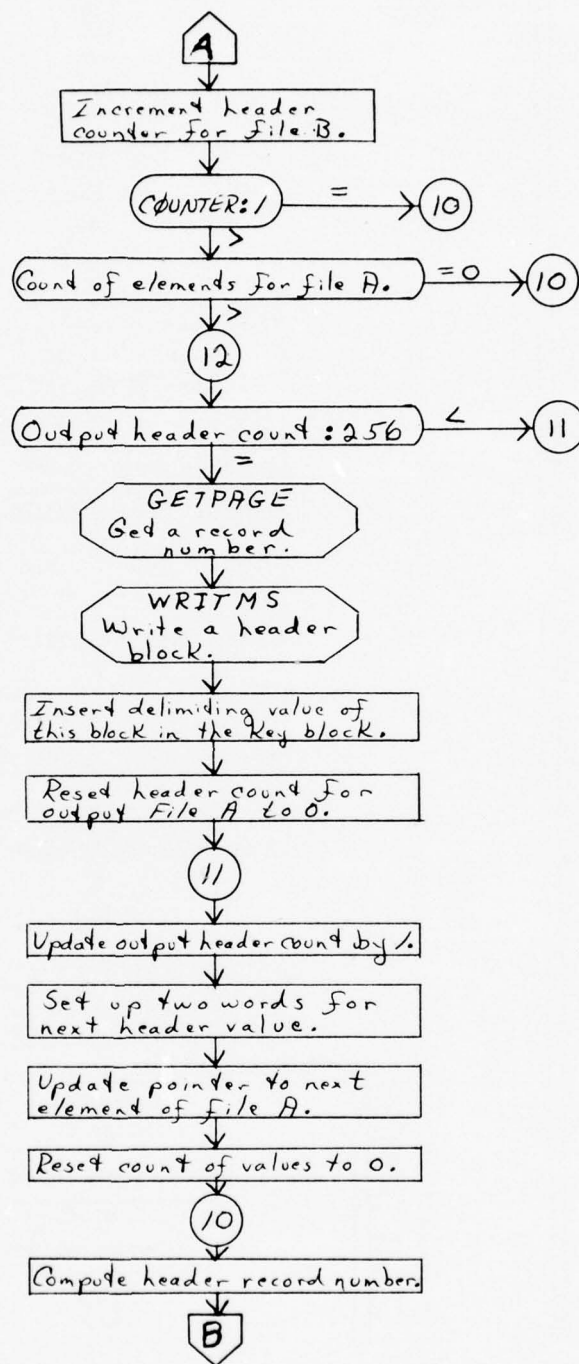 A
Increment header
counter for file B.
COUNTER:1
=
10
>
Count of elements for file A.
=0
10
>
12
Output header count :256
<
11
=
GETPAGE
Get a record
number.
WRITMS
Write a header
block.
Insert delimiding value of
this block in the key block.
Reset header count for
output File A to 0.
11
Update output header count by 1.
Set up two words for
next header value.
Update pointer to next
element of file A.
Reset count of values to 0.
10
Compute header record number.
B